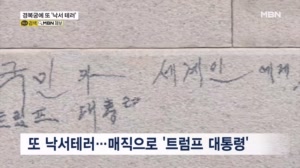 경복궁에 또 '낙서 테러'
MBN
국민과 세계인에게
트럼프 대통령
또 낙서테러…매직으로 '트럼프 대통령'